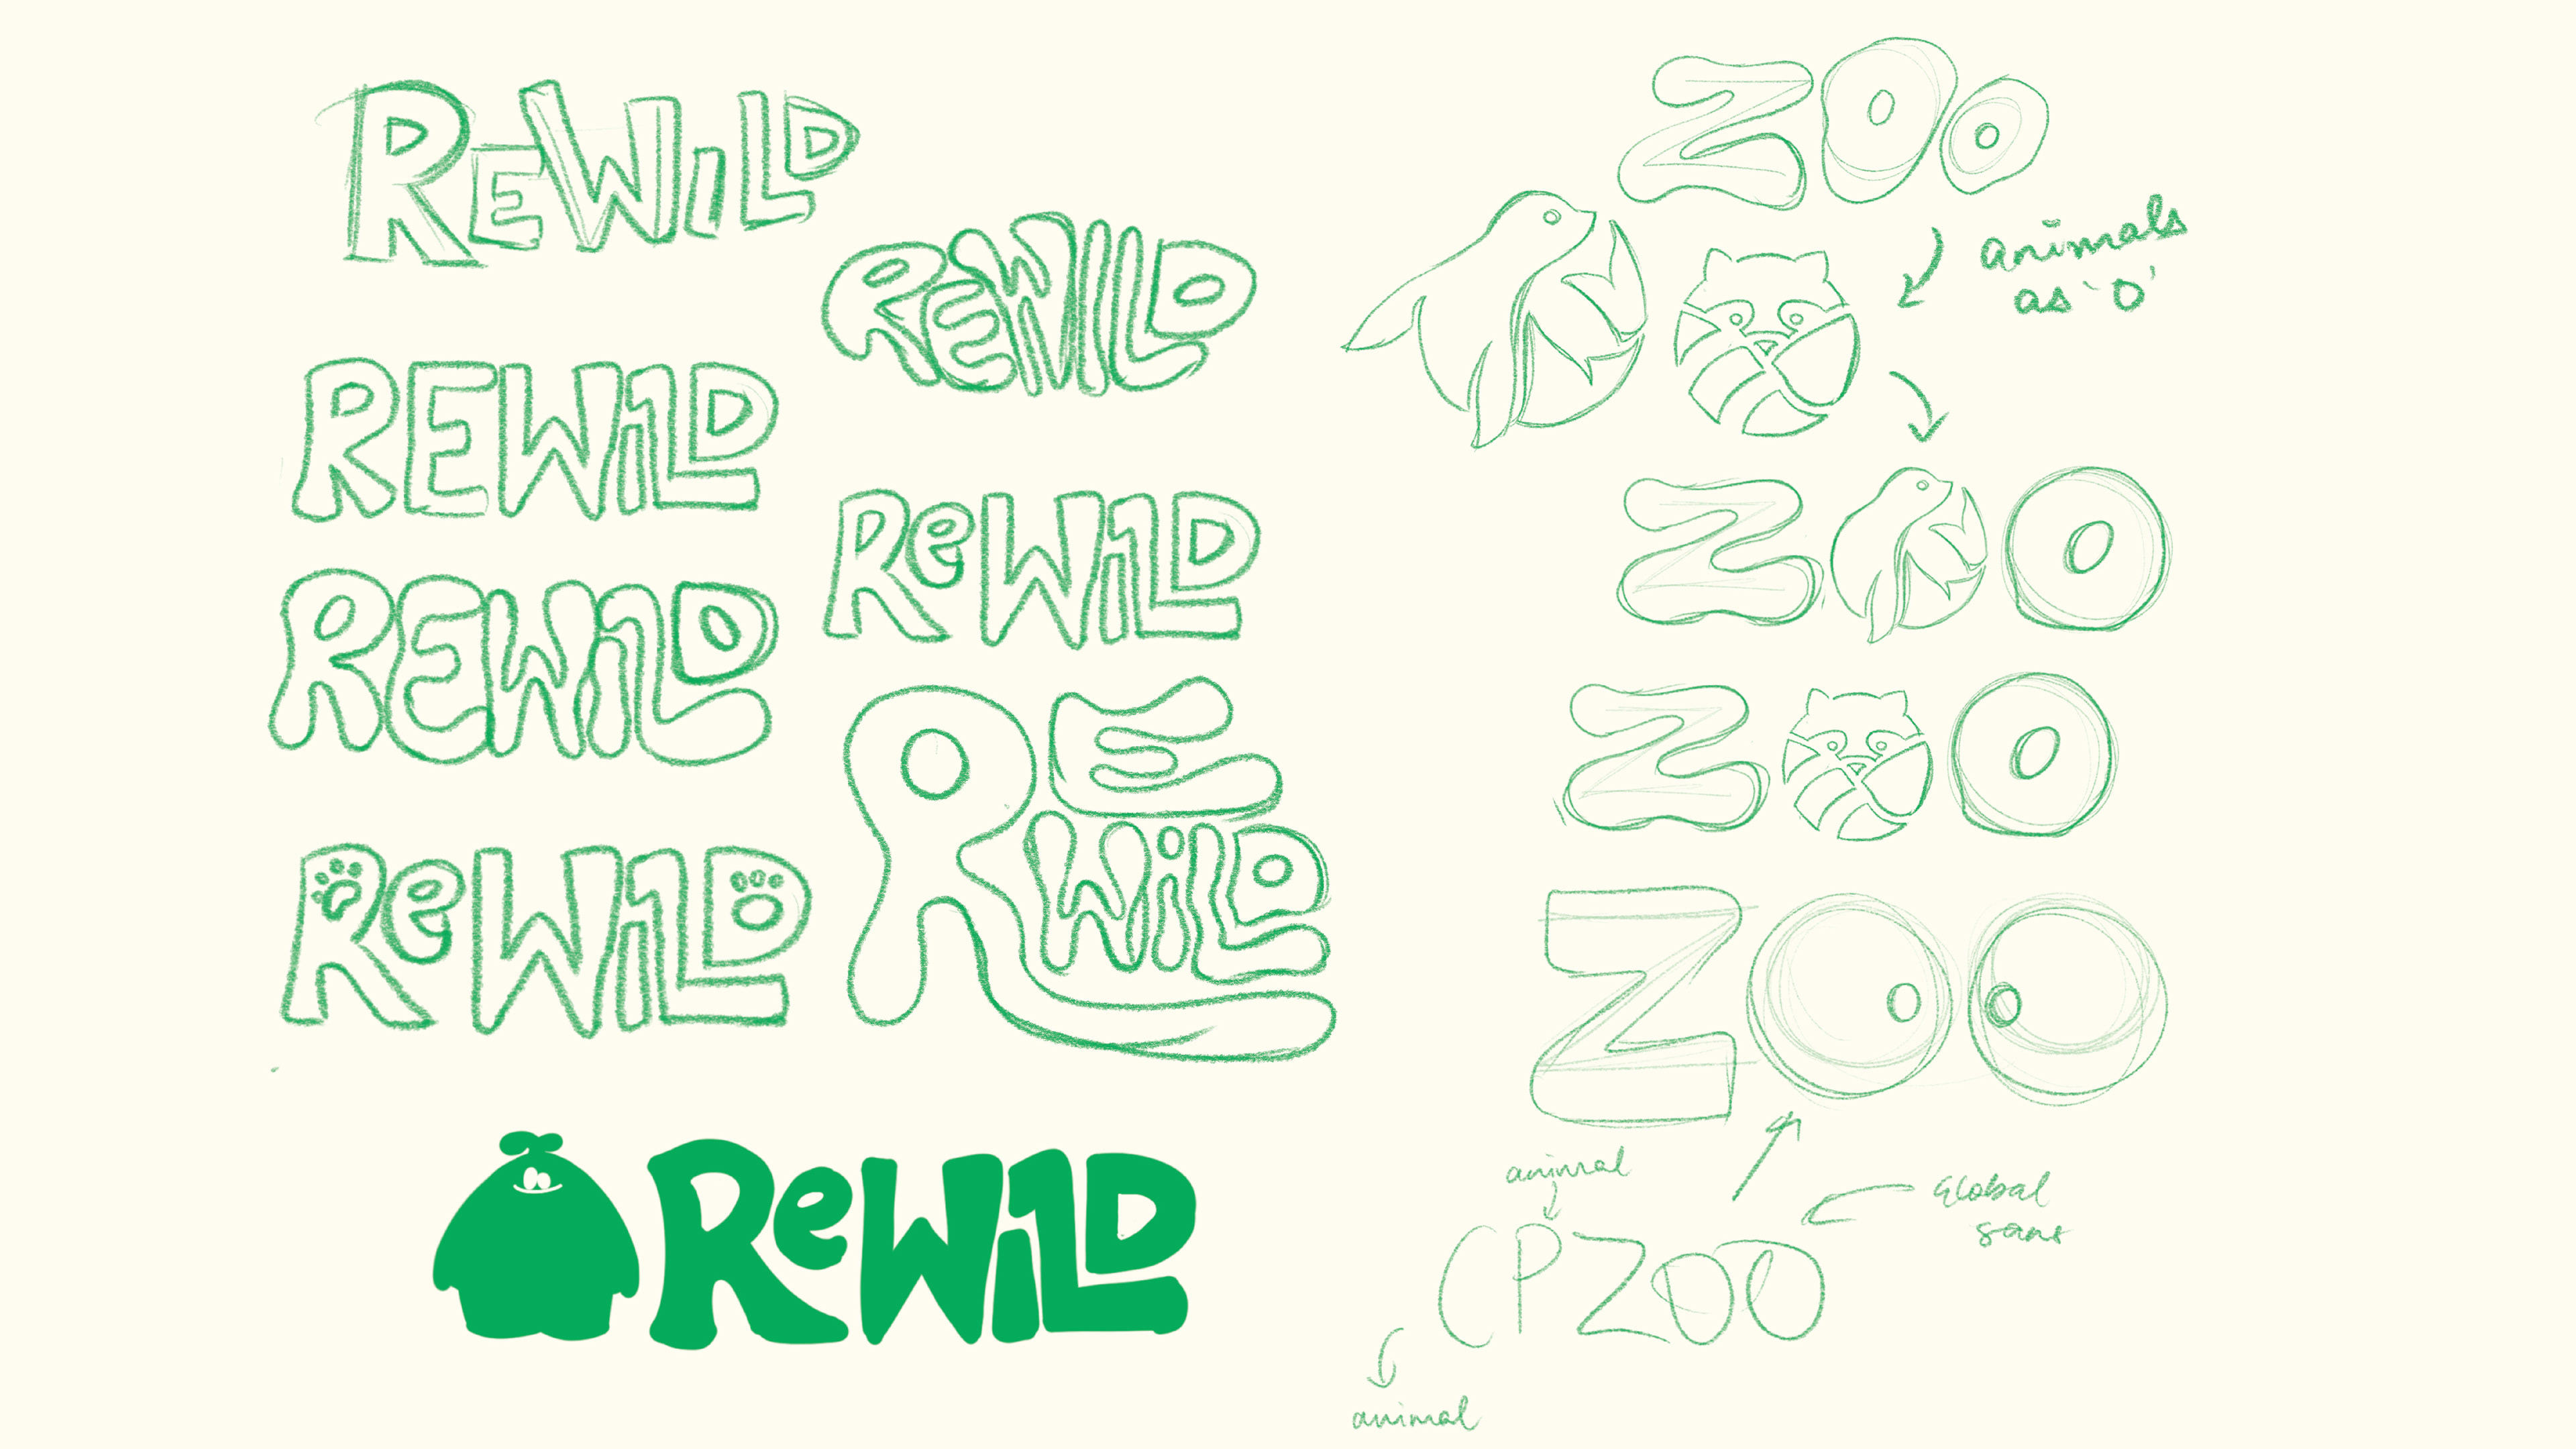 REWiLD
REWILD
REWiLD
ReWiLD
REWiLD
ReWiLD
RE
WiLD
ReWiLD
ZOO
animals
as 'O'
Z O
Z O
ZOO
animal
Global
sans
CPZOO
animal